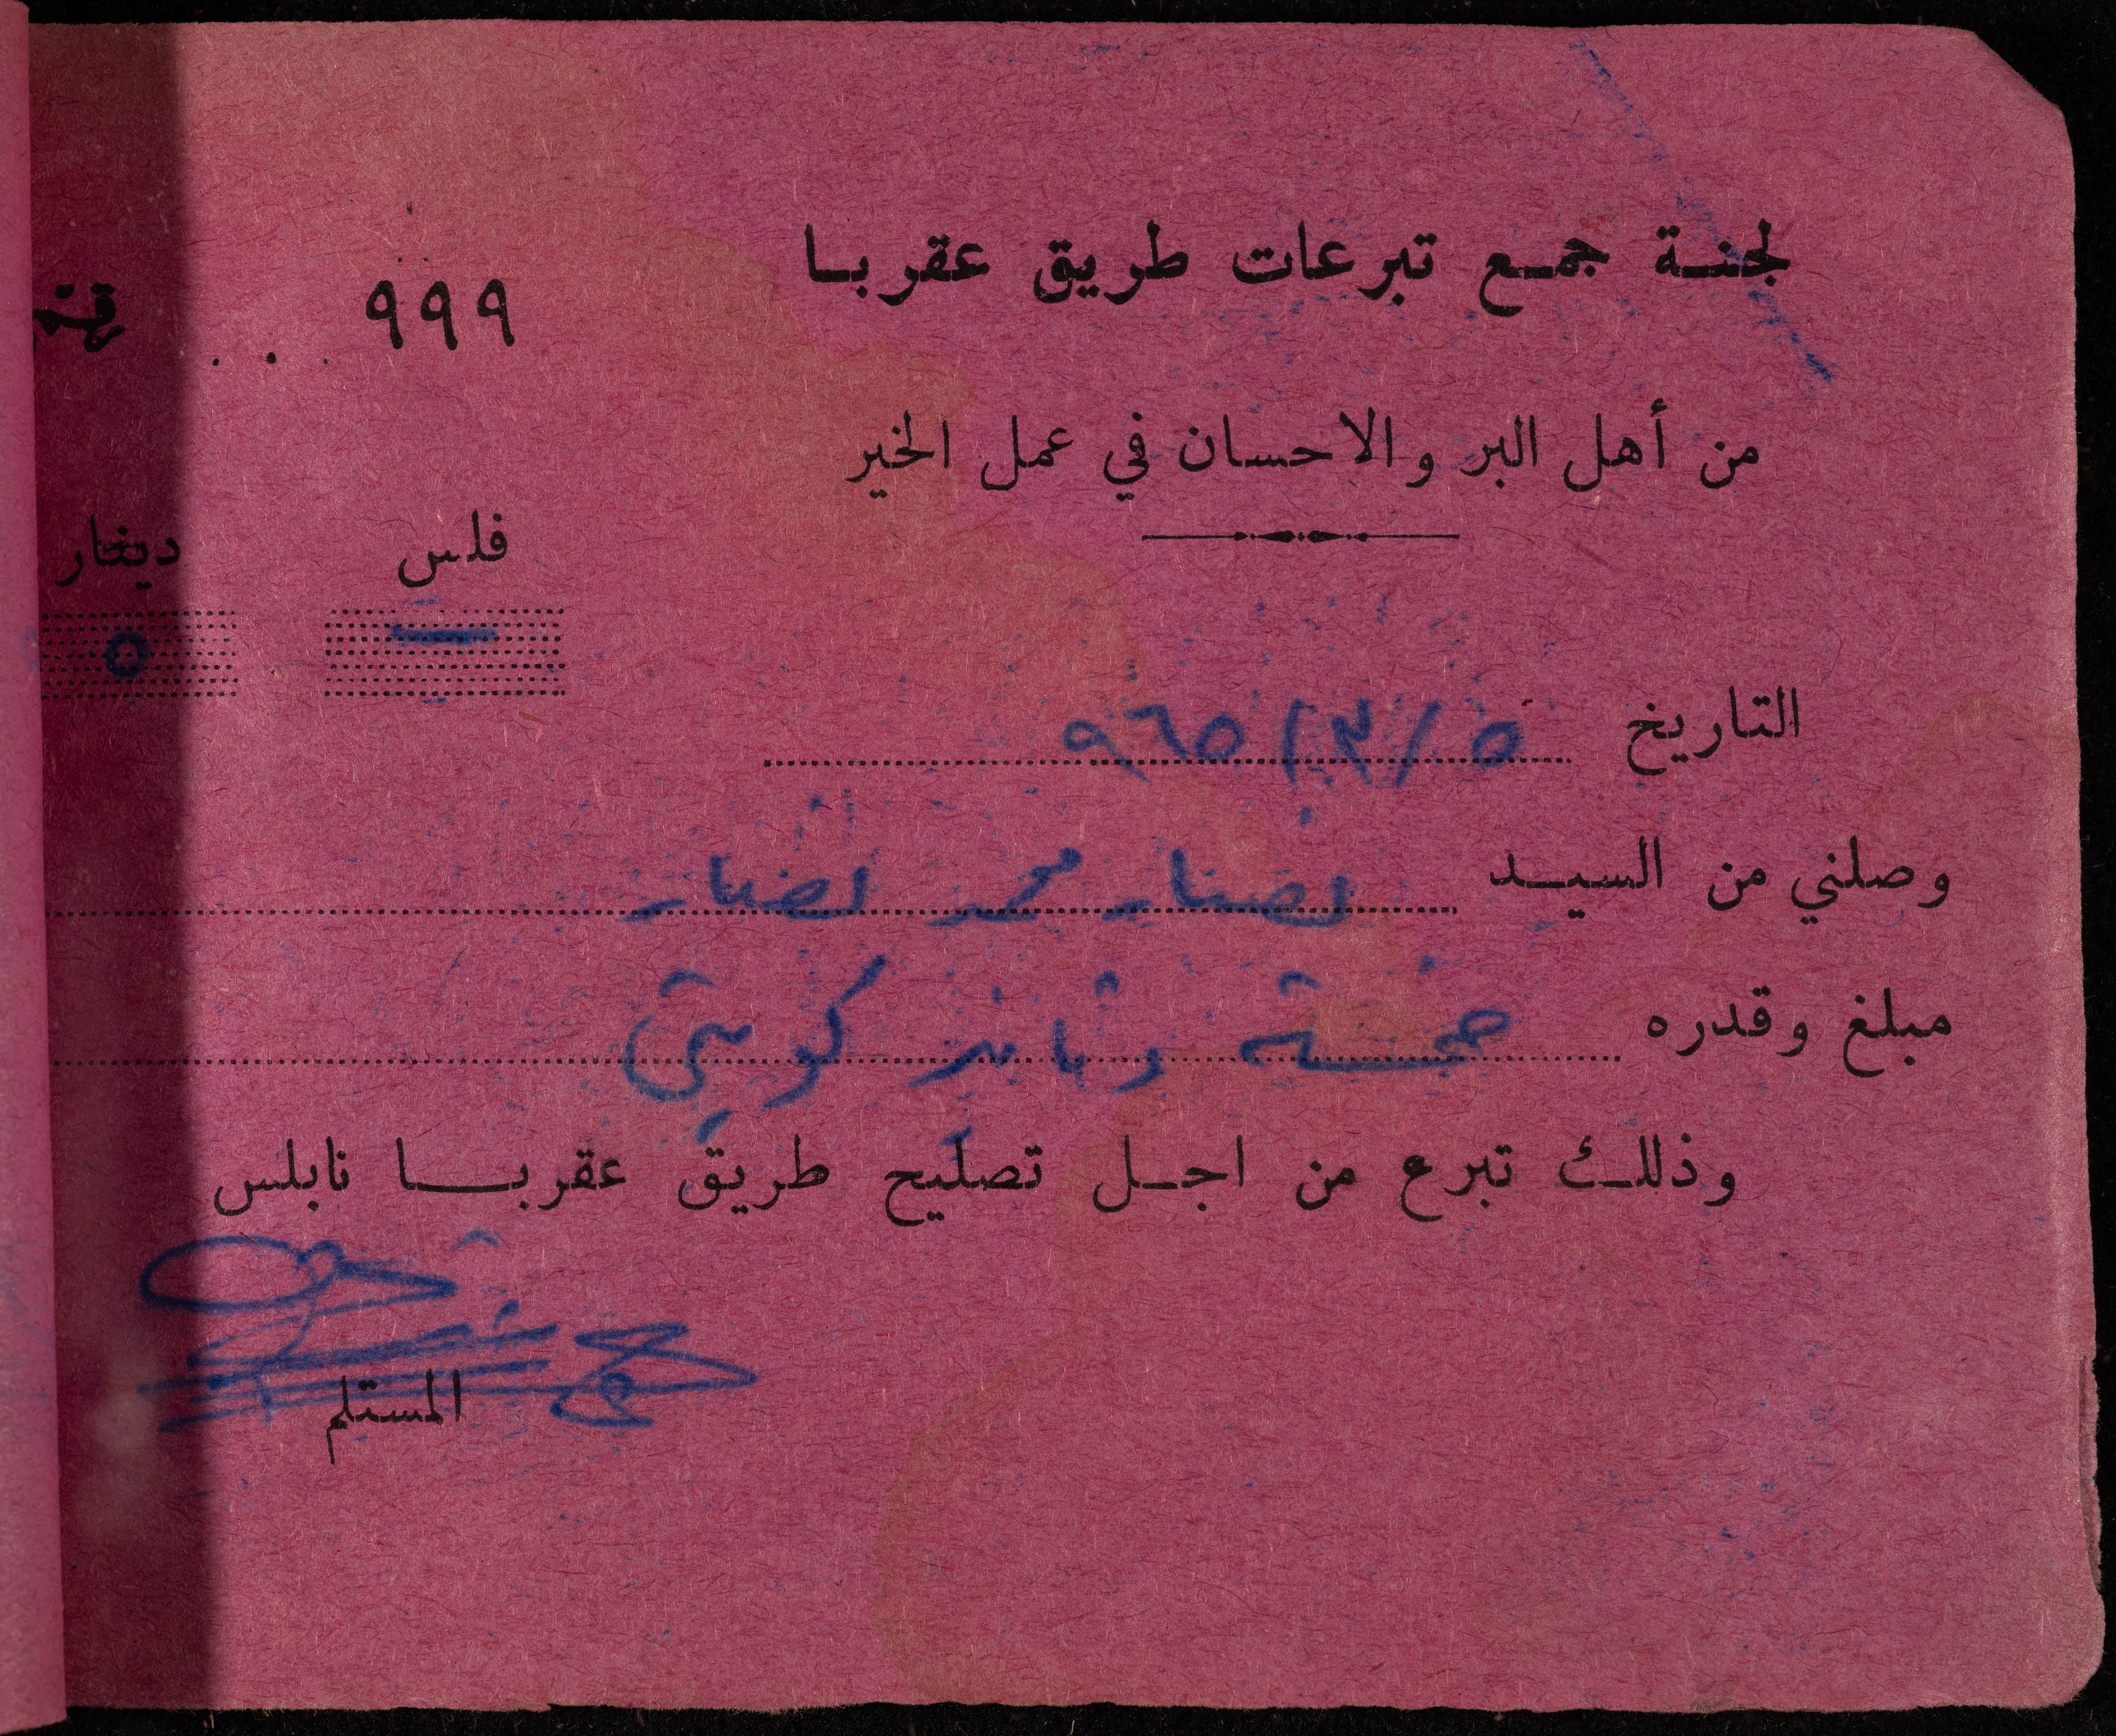 لجنة جمع تبرعات طريق عقربا
٩٩٩ . . .
من أهل البر والاحسان في عمل الخير
فلس دينار
— ٥
التاريخ ٥ / ٣ / ٩٦٥
وصلني من السيد نصار محمد نصار
مبلغ وقدره خمسة دنانير كويتي
وذلك تبرع من اجل تصليح طريق عقربا نابلس
المستلم